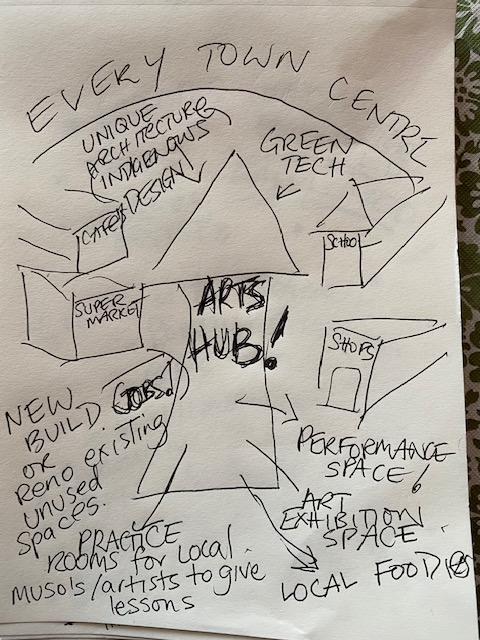 EVERY TOWN CENTRE
UNIQUE
ARCHITECTURE
INDIGENOUS
DESIGN
GREEN
TECH
CAFES
SCHOOL
SUPER
MARKET
ARTS
HUB!
SHOPS
JOBS!
NEW
BUILD.
OR
Reno existing
unused
spaces.
PERFORMANCE
SPACE!
ART
EXHIBITION
SPACE.
PRACTICE
rooms for local
musos/artists to give
lessons
LOCAL FOODIES